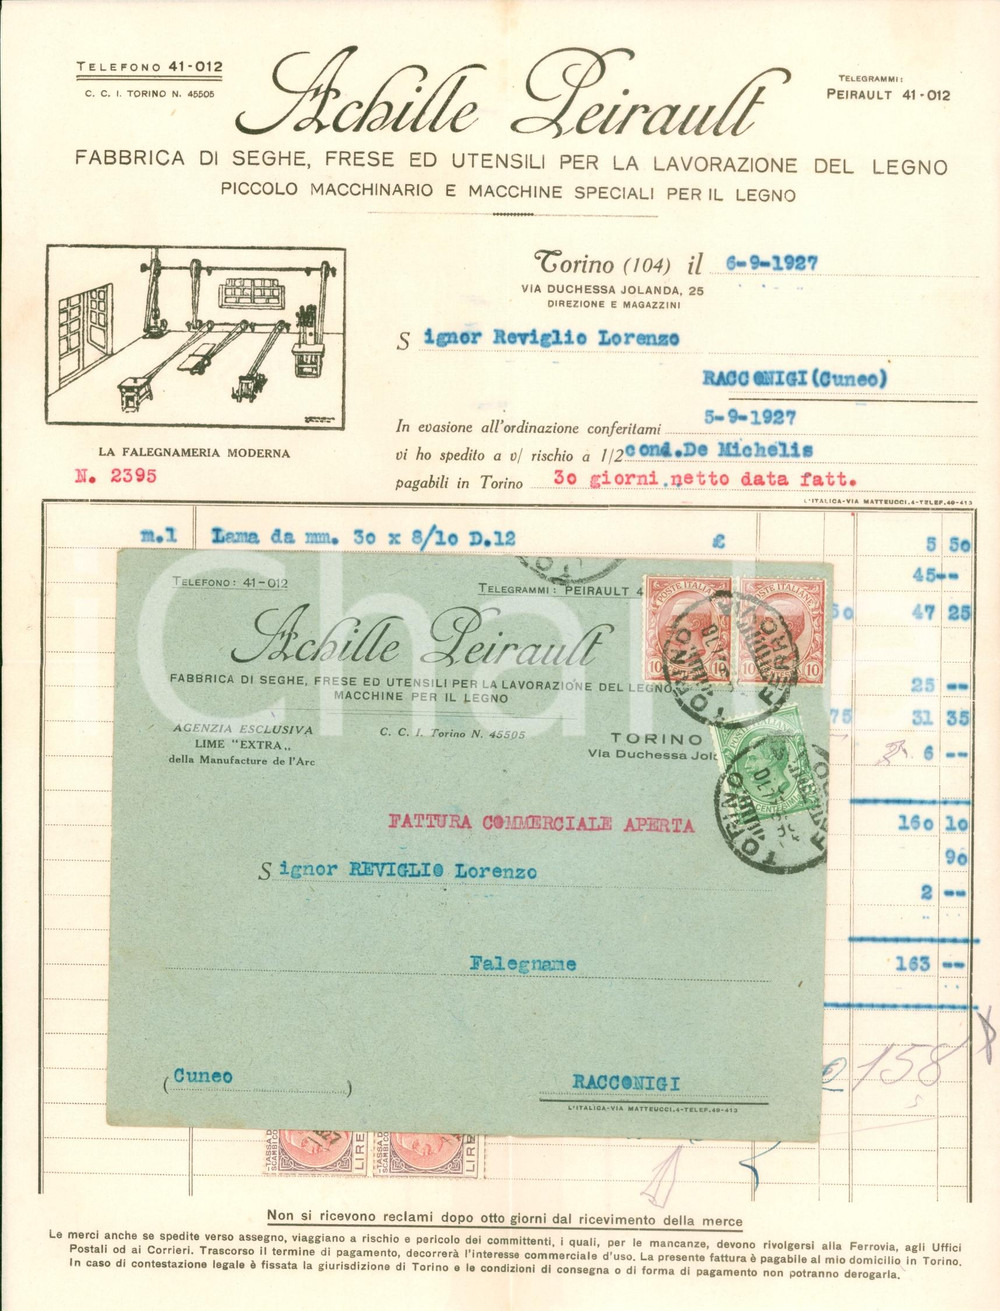 TELEFONO 41-012
C. C. I. TORINO N. 45505
Achille Peirault
TELEGRAMMI:
PEIRAULT 41-012
FABBRICA DI SEGHE, FRESE ED UTENSILI PER LA LAVORAZIONE DEL LEGNO
PICCOLO MACCHINARIO E MACCHINE SPECIALI PER IL LEGNO
Torino (104) il 6-9-1927
VIA DUCHESSA JOLANDA, 25
DIREZIONE E MAGAZZINI
Signor Reviglio Lorenzo
RACCONIGI(Cuneo)
In evasione all'ordinazione conferitami 5-9-1927
vi ho spedito a v/ rischio a 1/2 cond.De Michelis
pagabili in Torino 30 giorni netto data fatt.
LA FALEGNAMERIA MODERNA
N. 2395
L'ITALICA-VIA MATTEUCCI.4-TELEF.49-413
m.1 Lama da mm. 30 x 8/10 D.12 £ 5 50
45--
50 47 25
25 --
75 31 35
6 --
160 10
90
2 --
163 --
158
TELEFONO: 41-012
TELEGRAMMI: PEIRAULT 4
Achille Peirault
FABBRICA DI SEGHE, FRESE ED UTENSILI PER LA LAVORAZIONE DEL LEGNO
MACCHINE PER IL LEGNO
AGENZIA ESCLUSIVA
LIME "EXTRA„
della Manufacture de l'Arc
C. C. I. Torino N. 45505
TORINO
Via Duchessa Jol
POSTE ITALIANE
10 10
POSTE ITALIANE
10 10
TORINO
FERROVIA
FATTURA COMMERCIALE APERTA
Signor REVIGLIO Lorenzo
Falegname
(Cuneo)
RACCONIGI
L'ITALICA-VIA MATTEUCCI.4-TELEF.49-413
LIRE
LIRE
Non si ricevono reclami dopo otto giorni dal ricevimento della merce
Le merci anche se spedite verso assegno, viaggiano a rischio e pericolo dei committenti, i quali, per le mancanze, devono rivolgersi alla Ferrovia, agli Uffici
Postali od ai Corrieri. Trascorso il termine di pagamento, decorrerà l'interesse commerciale d'uso. La presente fattura è pagabile al mio domicilio in Torino.
In caso di contestazione legale è fissata la giurisdizione di Torino e le condizioni di consegna o di forma di pagamento non potranno derogarla.
iCharta